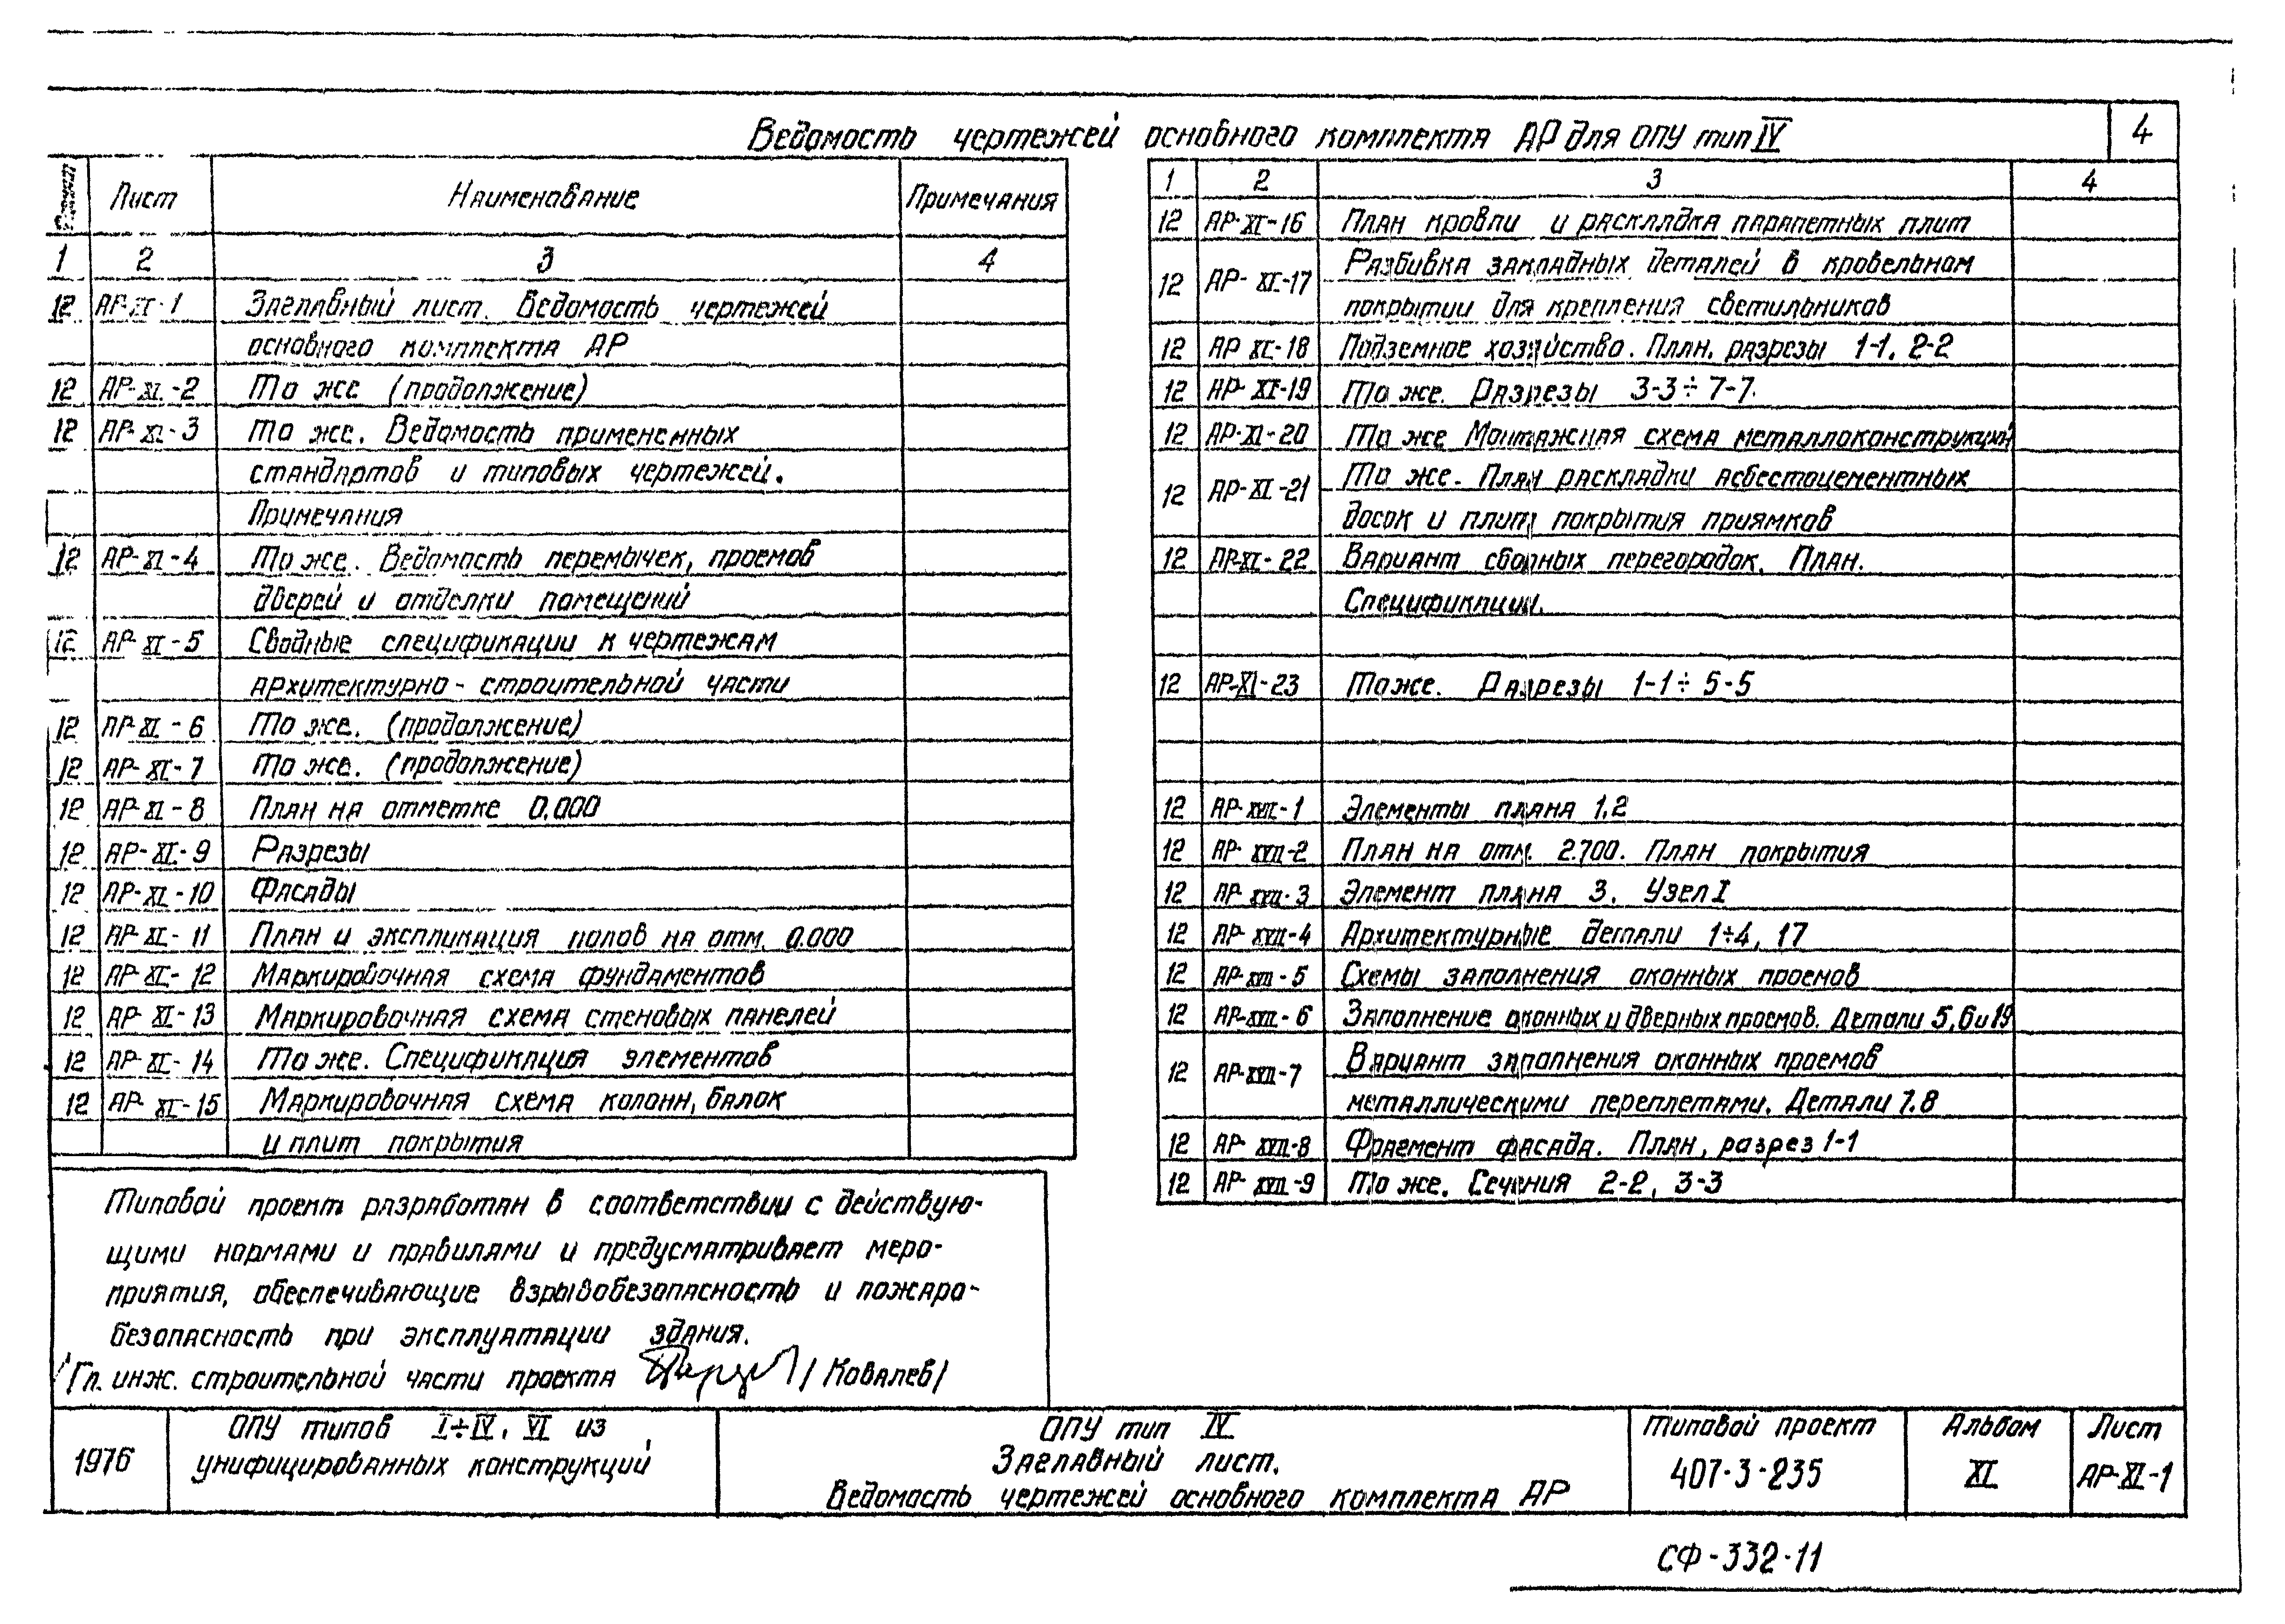 Ведомость чертежей основного комплекта АР для ОПУ тип IV
4
Лист Наименование Примечания
1 2 3 4
12 АР-XI-1 Заглавный лист. Ведомость чертежей
основного комплекта АР
12 АР-XI-2 То же (продолжение)
12 АР-XI-3 То же. Ведомость примененных
стандартов и типовых чертежей.
Примечания
12 АР-XI-4 То же. Ведомость перемычек, проемов
дверей и отделки помещений
12 АР-XI-5 Сводные спецификации к чертежам
архитектурно-строительной части
12 АР-XI-6 То же. (продолжение)
12 АР-XI-7 То же. (продолжение)
12 АР-XI-8 План на отметке 0.000
12 АР-XI-9 Разрезы
12 АР-XI-10 Фасады
12 АР-XI-11 План и экспликация полов на отм. 0.000
12 АР-XI-12 Маркировочная схема фундаментов
12 АР-XI-13 Маркировочная схема стеновых панелей
12 АР-XI-14 То же. Спецификация элементов
12 АР-XI-15 Маркировочная схема колонн, балок
и плит покрытия
1 2 3 4
12 АР-XI-16 План кровли и раскладка парапетных плит
12 АР-XI-17 Разбивка закладных деталей в кровельном
покрытии для крепления светильников
12 АР XI-18 Подземное хозяйство. План. разрезы 1-1, 2-2
12 АР-XI-19 То же. Разрезы 3-3÷7-7.
12 АР-XI-20 То же Монтажная схема металлоконструкций
12 АР-XI-21 То же. План раскладки асбестоцементных
досок и плит покрытия приямков
12 АР-XI-22 Вариант сборных перегородок. План.
Спецификации.
12 АР-XI-23 То же. Разрезы 1-1÷5-5
12 АР-XVII-1 Элементы плана 1,2
12 АР-XVII-2 План на отм. 2.700. План покрытия
12 АР-XVII-3 Элемент плана 3. Узел I
12 АР-XVII-4 Архитектурные детали 1÷4, 17
12 АР-XVII-5 Схемы заполнения оконных проемов
12 АР-XVII-6 Заполнение оконных и дверных проемов. Детали 5,6 и 19
12 АР-XVII-7 Вариант заполнения оконных проемов
металлическими переплетами. Детали 7.8
12 АР-XVII-8 Фрагмент фасада. План, разрез 1-1
12 АР-XVII-9 То же. Сечения 2-2, 3-3
Типовой проект разработан в соответствии с действую-
щими нормами и правилами и предусматривает меро-
приятия, обеспечивающие взрывобезопасность и пожаро-
безопасность при эксплуатации здания.
Гл. инж. строительной части проекта /Ковалев/
1976
ОПУ типов I÷IV, VI из
унифицированных конструкций
ОПУ тип IV
Заглавный лист.
Ведомость чертежей основного комплекта АР
Типовой проект
407-3-235
Альбом
XI
Лист
АР-XI-1
СФ-332-11